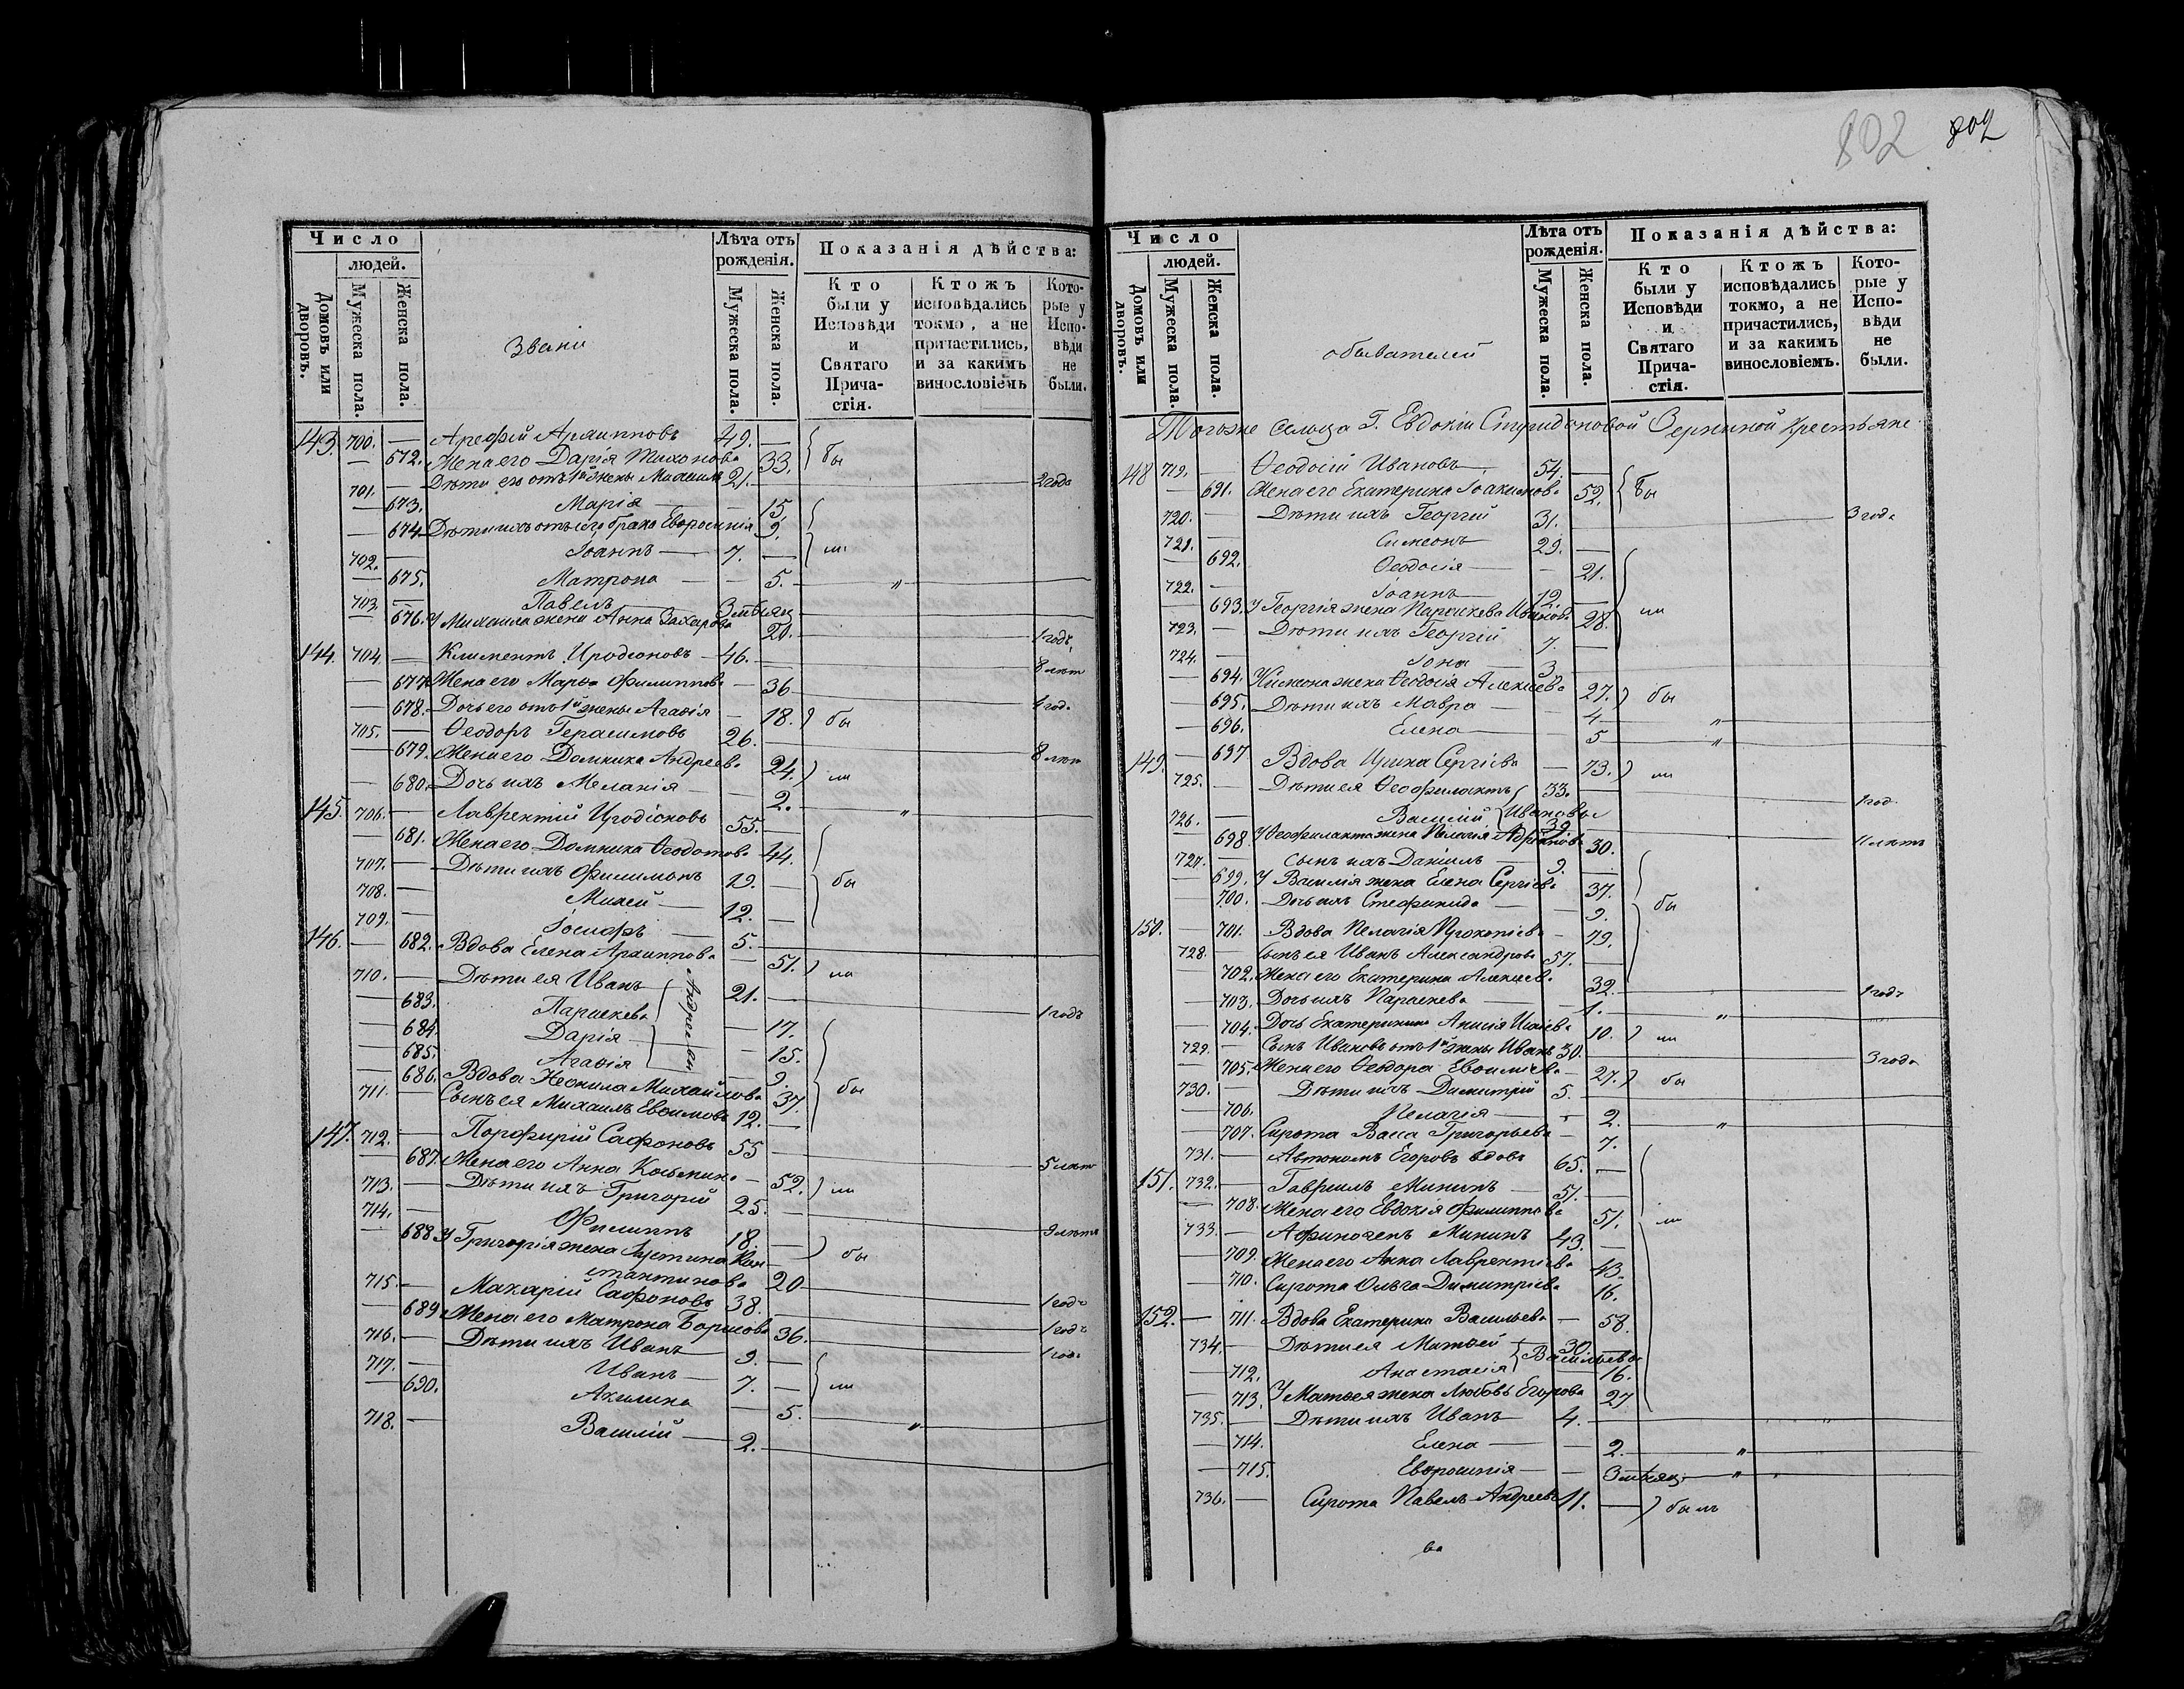 802 802
Число
людей.
Домовъ или дворовъ.
Мужеска пола.
Женска пола.
Звани
Лѣта отъ рожденія.
Мужеска пола.
Женска пола.
Показанія дѣйства:
Кто были у Исповѣди и Святаго Прича-стія.
Ктожъ исповѣдались токмо, а не причастились, и за какимъ винословіемъ
Кото-рые у Испо-вѣди не были.
143. 700. — Арефій Архипповъ 49. —
— 672. Жена его Дарія Тихонова 33. бы
701. — Дѣти его отъ 1й жены Михаилъ 21. — 2 года
— 673. Марія — — 15.
— 674. Дѣти ихъ отъ сего брака Евфросинія 9.
702. — Іоаннъ — 7. — ли
— 675. Матрона — — 5. — „ —
703. — Павелъ 3 мѣсяц
— 676. У Михаила жена Анна Захарова 20. — 1 годъ
144. 704 — Климентъ Иродіоновъ — 46. — 8 лѣт
— 677. Жена его Марья Филиппова — 36 — 1 год.
— 678. Дочь его отъ 1й жены Агафія — 18. бы
705. — Ѳеодоръ Герасимовъ 26. — 8 лѣт
— 679. Жена его Домника Андреева 24. ли
— 680. Дочь ихъ Меланія — — 2. — „ —
145. 706. — Лаврентій Иродіоновъ 55. —
681. Жена его Домника Ѳеодотова 44.
707. — Дѣти ихъ Филимонъ 19. — бы
708. — Михей — 12. —
709. — Іосифъ — 5. —
146. — 682. Вдова Елена Архиппова — 51. ли
710. — Дѣти ея Иванъ 21. — 1 годъ
— 683. Параскева — 17.
— 684. Дарія — 15.
— 685. Агафія — 9.
Андреевы
— 686. Вдова Неонила Михайлова 37. бы
711. — Сынъ ея Михаилъ Евфимовъ 12. —
147. 712. — Порфирій Сафоновъ 55 — 5 лѣт
— 687. Жена его Анна Косьмина — 52. ли
713. — Дѣти ихъ Григорій 25. —
714. — Филиппъ 18. — бы
— 688. У Григорія жена Кон-
стантинова 20 — 1 годъ
715. — Макарій Сафоновъ 38. — 1 годъ
— 689 Жена его Матрона Борисова 36. — 1 год.
716. — Дѣти ихъ Иванъ 9. —
717. — Иванъ — 7. — ли
— 690. Акилина — 5. — „ —
718. — Василій — 2. —
Число
людей.
Домовъ или дворовъ.
Мужеска пола.
Женска пола.
обывателей
Лѣта отъ рожденія.
Мужеска пола.
Женска пола.
Показанія дѣйства:
Кто были у Исповѣди и Святаго Прича-стія.
Ктожъ исповѣдались токмо, а не причастились, и за какимъ винословіемъ.
Кото-рые у Испо-вѣди не были.
Тогоже сельца Г. Евдокіи Спиридоновой Зерниной крестьяне
148 719. — Ѳеодосій Ивановъ 54. —
— 691. Жена его Екатерина Іоакимова 52. бы
720. — Дѣти ихъ Георгій 31. — 3 года
721. — Симеонъ 29. —
692. Ѳеодосія — — 21.
722. — Іоаннъ 19. —
— 693. У Георгія жена Параскева Иванова 28. ли
723. — Дѣти ихъ Георгій 7. —
724. — Іона 3. —
— 694. У Симеона жена Ѳеодосія Алексѣева 27. бы
695. Дѣти ихъ Мавра — 4 — „ —
— 696. Елена — 5 — „ —
149. — 697 Вдова Ирина Сергіева — 73. ли
725. — Дѣти ея Ѳеофилактъ 33. — 1 год.
726. — Василій Ивановы 39. — 11 лѣтъ
— 698 У Ѳеофилакта жена Пелагія Адріанова 30.
727. — Сынъ ихъ Даніилъ 9. —
— 699. У Василія жена Елена Сергіева 37. бы
— 700. Дочь ихъ Стефанида — 9.
150. — 701. Вдова Пелагія Прокопіева — 79.
728. Сынъ ея Иванъ Александровъ 57. —
702. Жена его Екатерина Алексѣева 32. — 1 годъ
— 703. Дочь ихъ Параскева — — 1. — „ —
— 704. Дочь Екатеринина Анисія 10. ли
729. — Сынъ Ивановъ отъ 1й жены Иванъ 30. — 3 года
— 705. Жена его Ѳеодора Евфиміева — 27. бы
730. — Дѣти ихъ Димитрій 5. —
— 706. Пелагія — 2. — „ —
— 707. Сирота Васса Григорьева — 7.
731. — Автономъ Егоровъ вдовъ 65. —
151. 732. — Гавріилъ Мининъ — 51. —
— 708. Жена его Евдокія Филиппова 51. ли
733. — Афиногенъ Мининъ 43. —
— 709. Жена его Анна Лаврентіева 43.
— 710. Сирота Ольга Димитріева 16.
152. — 711. Вдова Екатерина Васильева — 58.
734. — Дѣти ея Матѳей 30. —
— 712. Анастасія Васильевы 16.
— 713. У Матѳея жена Любовь Егорова 27
735. — Дѣти ихъ Иванъ 4. — „ —
— 714. Елена — — 2. — „ —
— 715. Евфросинія — — 3 мѣсяц. — „ —
736. — Сирота Павелъ Андреевъ 11. — былъ
ва